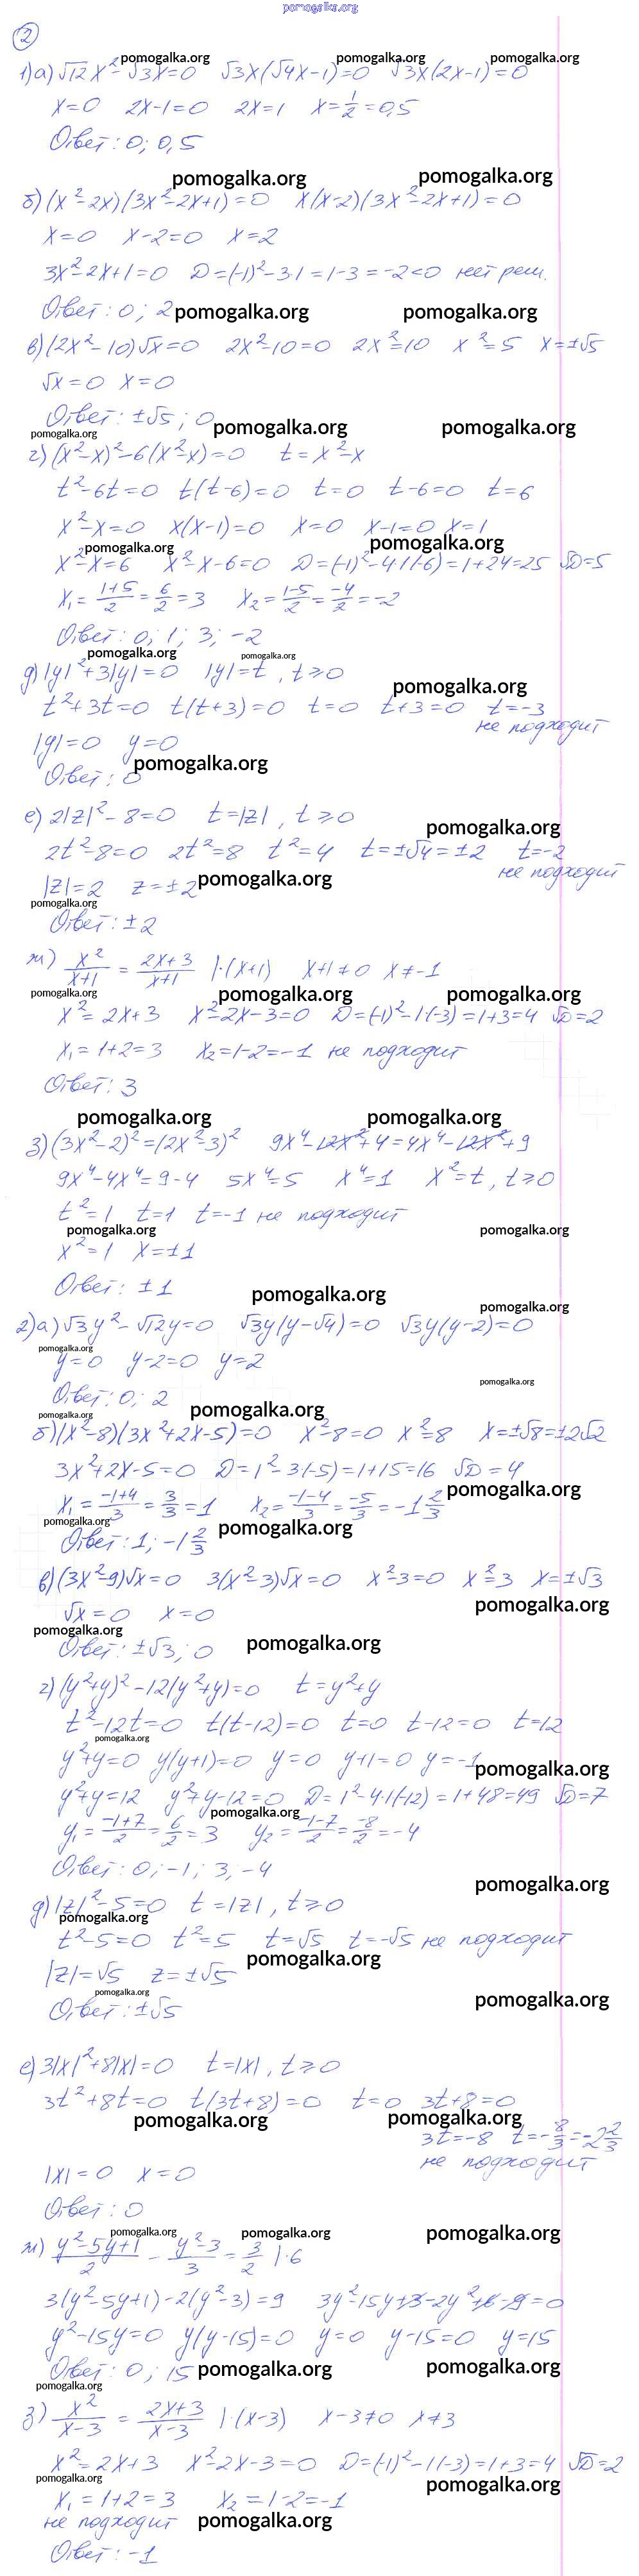 pomogalka.org
2
pomogalka.org pomogalka.org pomogalka.org
1) а) √12 x² - √3x = 0 √3x(√4x - 1) = 0 √3x(2x - 1) = 0
x = 0 2x - 1 = 0 2x = 1 x = 1/2 = 0,5
Ответ: 0; 0,5
pomogalka.org pomogalka.org
б) (x² - 2x)(3x² - 2x + 1) = 0 x(x - 2)(3x² - 2x + 1) = 0
x = 0 x - 2 = 0 x = 2
3x² - 2x + 1 = 0 D = (-1)² - 3·1 = 1 - 3 = -2 < 0 нет реш.
Ответ: 0; 2 pomogalka.org pomogalka.org
в) (2x² - 10)√x = 0 2x² - 10 = 0 2x² = 10 x² = 5 x = ±√5
√x = 0 x = 0
Ответ: ±√5; 0 pomogalka.org pomogalka.org
pomogalka.org
г) (x² - x)² - 6(x² - x) = 0 t = x² - x
t² - 6t = 0 t(t - 6) = 0 t = 0 t - 6 = 0 t = 6
x² - x = 0 x(x - 1) = 0 x = 0 x - 1 = 0 x = 1
pomogalka.org pomogalka.org
x² - x = 6 x² - x - 6 = 0 D = (-1)² - 4·1·(-6) = 1 + 24 = 25 √D = 5
x₁ = (1+5)/2 = 6/2 = 3 x₂ = (1-5)/2 = -4/2 = -2
Ответ: 0; 1; 3; -2
pomogalka.org pomogalka.org
д) |y|² + 3|y| = 0 |y| = t, t ≥ 0
pomogalka.org
t² + 3t = 0 t(t + 3) = 0 t = 0 t + 3 = 0 t = -3
не подходит
|y| = 0 y = 0
Ответ: 0 pomogalka.org
е) 2|z|² - 8 = 0 t = |z|, t ≥ 0
pomogalka.org
2t² - 8 = 0 2t² = 8 t² = 4 t = ±√4 = ±2 t = -2
не подходит
|z| = 2 z = ±2 pomogalka.org
pomogalka.org
Ответ: ±2
ж) x²/(x+1) = (2x+3)/(x+1) |·(x+1) x + 1 ≠ 0 x ≠ -1
pomogalka.org pomogalka.org pomogalka.org
x² = 2x + 3 x² - 2x - 3 = 0 D = (-1)² - 1·(-3) = 1 + 3 = 4 √D = 2
x₁ = 1 + 2 = 3 x₂ = 1 - 2 = -1 не подходит
Ответ: 3
pomogalka.org pomogalka.org
з) (3x² - 2)² = (2x² - 3)² 9x⁴ - 12x² + 4 = 4x⁴ - 12x² + 9
9x⁴ - 4x⁴ = 9 - 4 5x⁴ = 5 x⁴ = 1 x² = t, t ≥ 0
t² = 1 t = 1 t = -1 не подходит
pomogalka.org pomogalka.org
x² = 1 x = ±1
Ответ: ±1
pomogalka.org pomogalka.org
2) а) √3y² - √12y = 0 √3y(y - √4) = 0 √3y(y - 2) = 0
pomogalka.org
y = 0 y - 2 = 0 y = 2
pomogalka.org
Ответ: 0; 2
pomogalka.org pomogalka.org
б) (x² - 8)(3x² + 2x - 5) = 0 x² - 8 = 0 x² = 8 x = ±√8 = ±2√2
3x² + 2x - 5 = 0 D = 1² - 3·(-5) = 1 + 15 = 16 √D = 4
x₁ = (-1+4)/3 = 3/3 = 1 x₂ = (-1-4)/3 = -5/3 = -1 2/3 pomogalka.org
pomogalka.org pomogalka.org
Ответ: 1; -1 2/3
в) (3x² - 9)√x = 0 3(x² - 3)√x = 0 x² - 3 = 0 x² = 3 x = ±√3
pomogalka.org
√x = 0 x = 0
pomogalka.org pomogalka.org
Ответ: ±√3; 0
г) (y² + y)² - 12(y² + y) = 0 t = y² + y
t² - 12t = 0 t(t - 12) = 0 t = 0 t - 12 = 0 t = 12
pomogalka.org
y² + y = 0 y(y + 1) = 0 y = 0 y + 1 = 0 y = -1
pomogalka.org
y² + y = 12 y² + y - 12 = 0 D = 1² - 4·1·(-12) = 1 + 48 = 49 √D = 7
pomogalka.org
y₁ = (-1+7)/2 = 6/2 = 3 y₂ = (-1-7)/2 = -8/2 = -4
Ответ: 0; -1; 3; -4
pomogalka.org
д) |z|² - 5 = 0 t = |z|, t ≥ 0
pomogalka.org
t² - 5 = 0 t² = 5 t = √5 t = -√5 не подходит
pomogalka.org
|z| = √5 z = ±√5
pomogalka.org pomogalka.org
Ответ: ±√5
е) 3|x|² + 8|x| = 0 t = |x|, t ≥ 0
3t² + 8t = 0 t(3t + 8) = 0 t = 0 3t + 8 = 0
pomogalka.org pomogalka.org
3t = -8 t = -8/3 = -2 2/3
не подходит
|x| = 0 x = 0
Ответ: 0
pomogalka.org pomogalka.org pomogalka.org
ж) (y² - 5y + 1)/2 - (y² - 3)/3 = 3/2 |·6
3(y² - 5y + 1) - 2(y² - 3) = 9 3y² - 15y + 3 - 2y² + 6 - 9 = 0
y² - 15y = 0 y(y - 15) = 0 y = 0 y - 15 = 0 y = 15
Ответ: 0; 15 pomogalka.org pomogalka.org
pomogalka.org
з) x²/(x-3) = (2x+3)/(x-3) |·(x-3) x - 3 ≠ 0 x ≠ 3
x² = 2x + 3 x² - 2x - 3 = 0 D = (-1)² - 1·(-3) = 1 + 3 = 4 √D = 2
pomogalka.org pomogalka.org
x₁ = 1 + 2 = 3 x₂ = 1 - 2 = -1
не подходит pomogalka.org
Ответ: -1